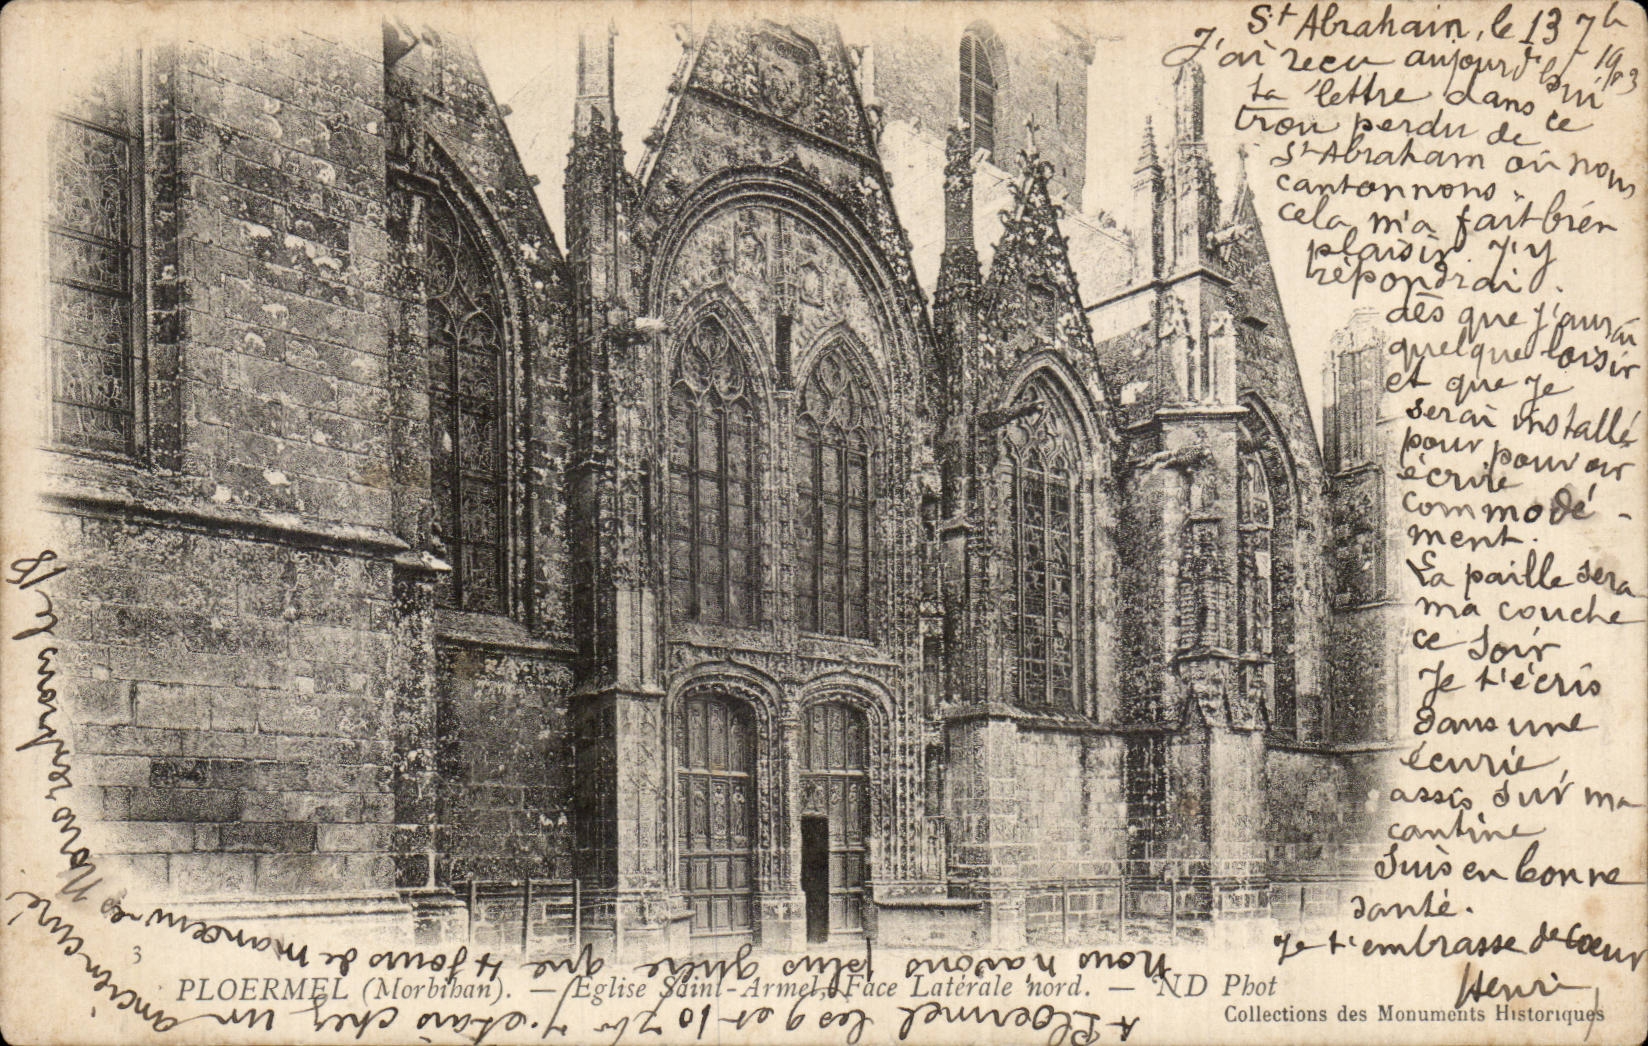 St Abrahain, le 13 7bre 1903
J'ai recu aujourd'hui
ta lettre dans ce
trou perdu de
St Abraham où nous
cantonnons.
cela m'a fait bien
plaisir. J'y
répondrai
dès que j'aurai
quelque loisir
et que je
serai installé
pour pouvoir
écrire
commodé-
ment.
La paille sera
ma couche
ce soir
Je t'écris
dans une
écurie,
assis sur ma
cantine
Suis en bonne
santé.
Je t'embrasse de coeur
Henri
Nous n'avons plus guère que 4 jours de manoeuvres Nous rentrons le 18
A Ploermel les 9 et 10 7bre j'étais chez un ancien curé
3
PLOERMEL (Morbihan). — Eglise Saint-Armel, Face Latérale nord. — ND Phot
Collections des Monuments Historiques